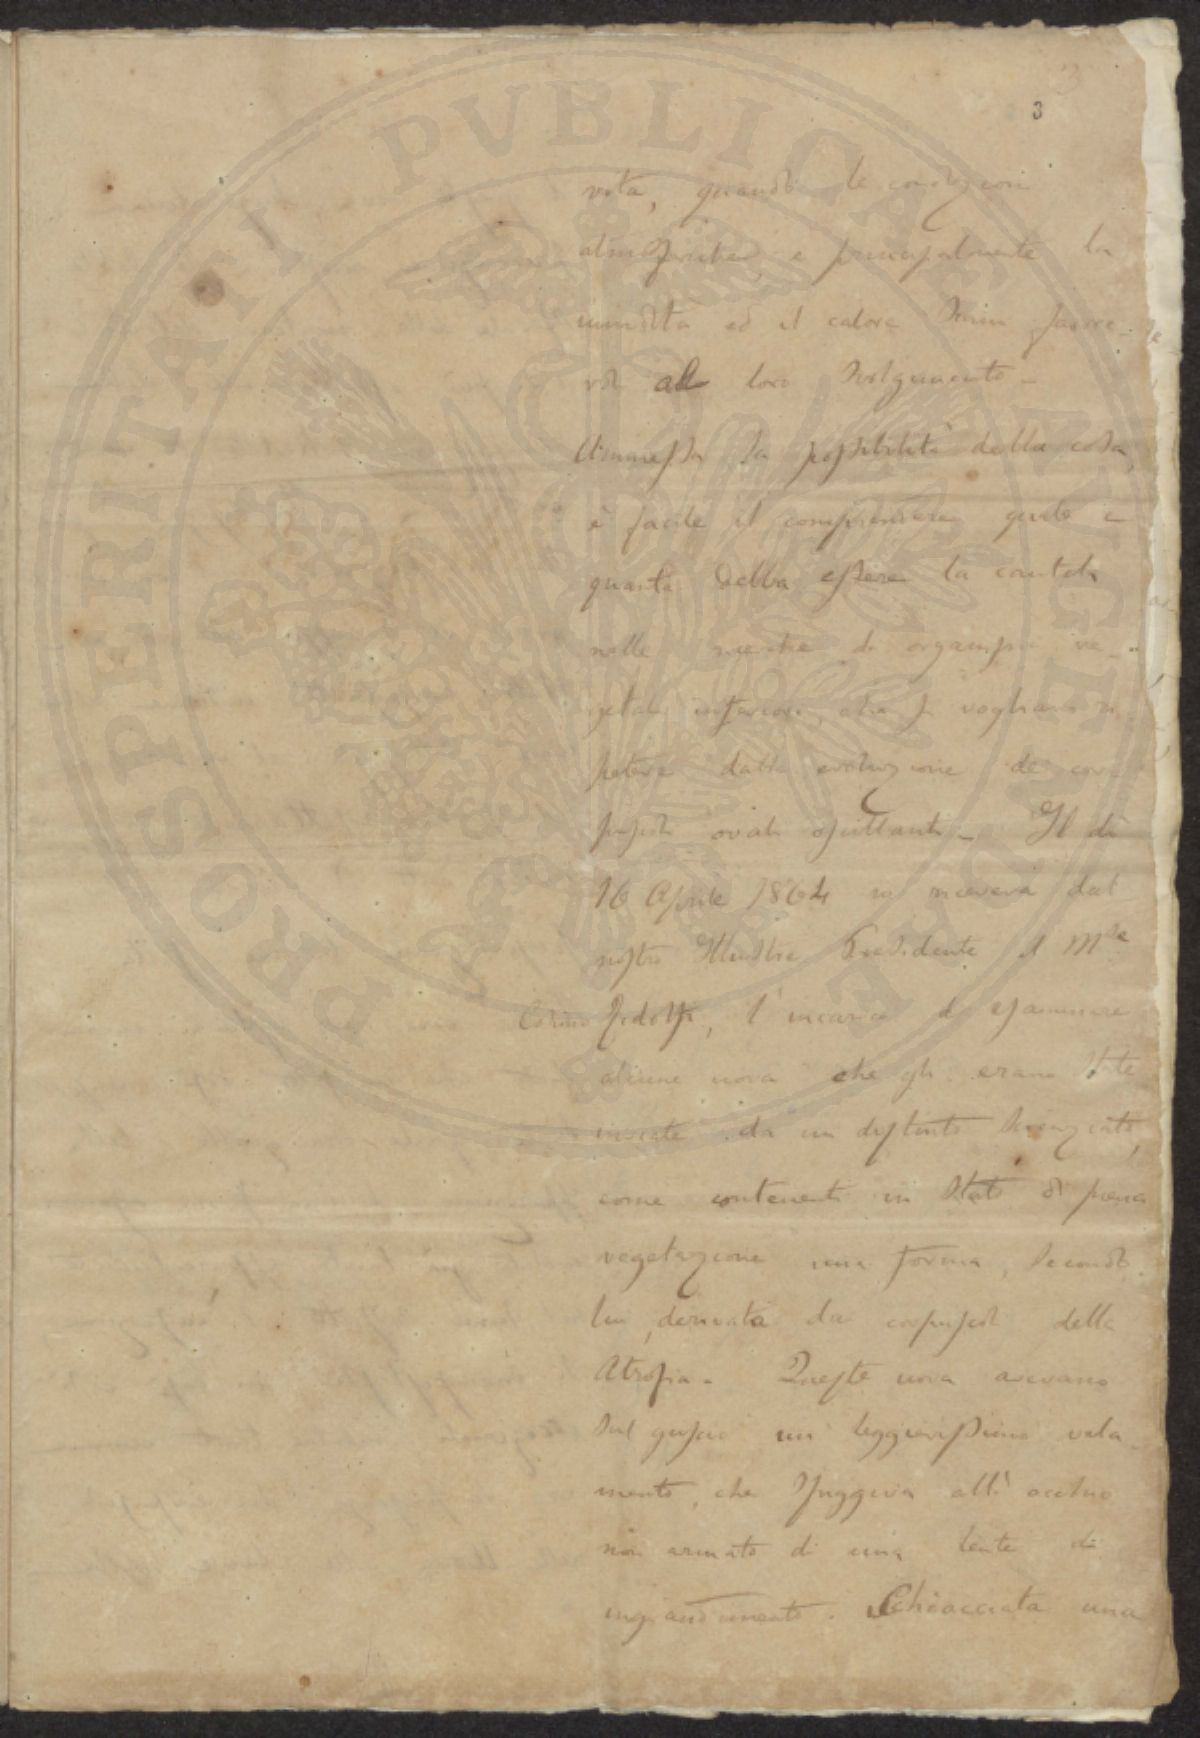 3
vita, quando le condizioni
atmosferiche, e principalmente la
umidità ed il calore sieno favore-
voli al loro svolgimento -
Ammessa la possibilità della cosa,
è facile il comprendere quale e
quanta debba essere la cautela
nelle ricerche di organismi ve-
getali inferiori, che si vogliano ri-
petere dalla evoluzione de' corp
puscoli ovali oscillanti - Il dì
16 Aprile 1864 io riceveva dal
nostro Illustre Presidente il Mse
Cosimo Ridolfi, l'incarico di esaminare
alcune uova che gli erano state
inviate da un distinto scienziato,
come contenenti in stato di piena
vegetazione una forma, secondo
lui, derivata da corpuscoli della
Atrofia - Queste uova avevano
sul guscio un leggierissimo vela-
mento, che sfuggiva all'occhio
non armato di una lente di
ingrandimento. Schiacciata una
PROSPERITATI PVBLICAE AVGENDAE